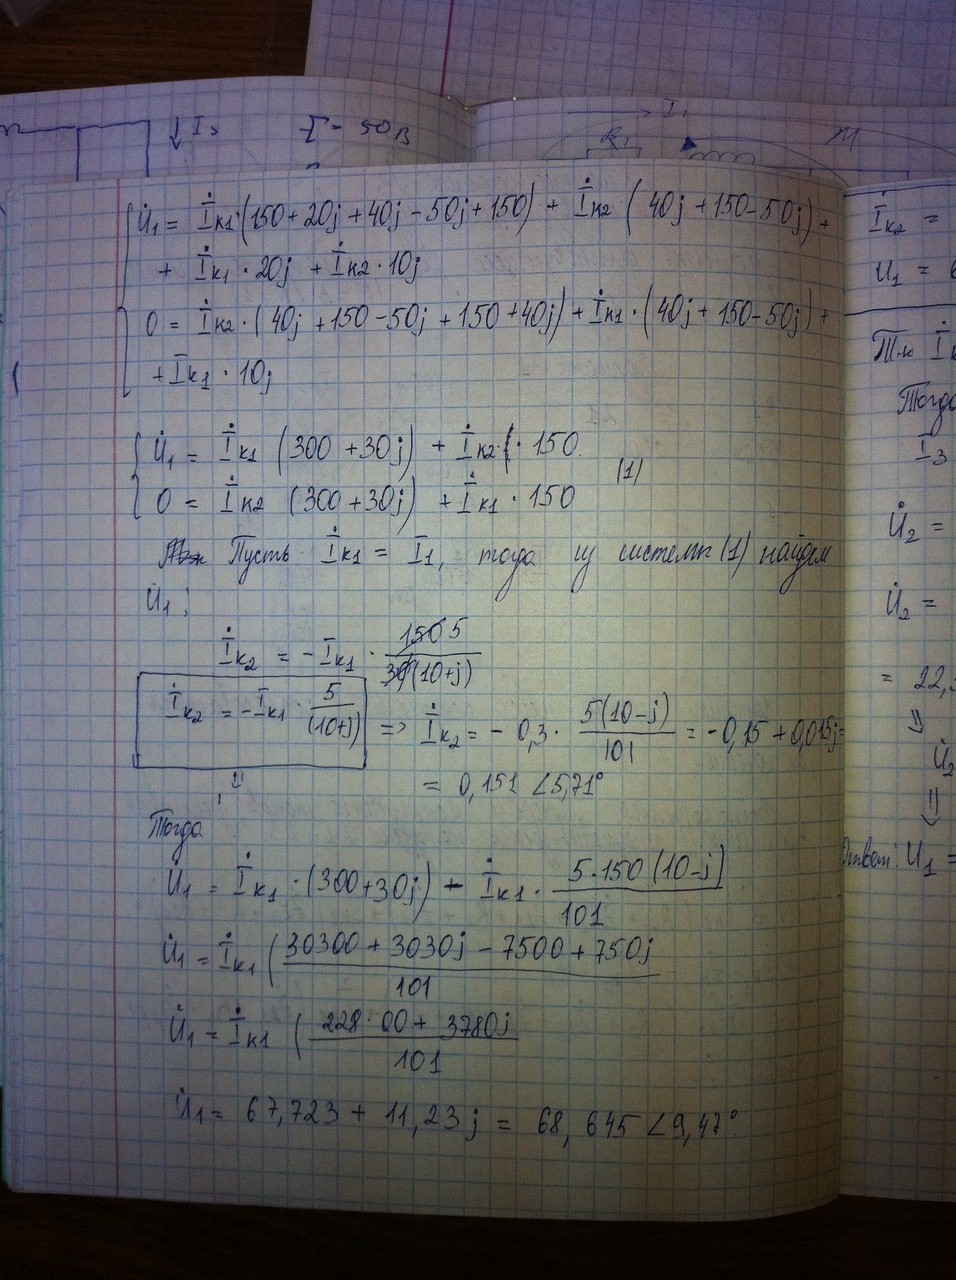 I₃ E = 50 В
I₁
R₁ M
U̇₁ = İк1·(150+20j+40j-50j+150) + İк2 (40j+150-50j) +
+ İк1·20j + İк2·10j
0 = İк2·(40j+150-50j+150+40j) + İк1·(40j+150-50j) +
+ Iк1·10j
U̇₁ = İк1 (300+30j) + İк2·150.
0 = İк2 (300+30j) + İк1·150
(1)
Пусть İк1 = I₁, тогда из системы (1) найдем
U̇₁:
İк2 = -Iк1· 150 5 / 30 (10+j)
İк2 = -Iк1· 5/(10+j) => İк2 = -0,3· 5(10-j)/101 = -0,15 + 0,015j =
= 0,151 ∠5,71°
Тогда
U̇₁ = İк1·(300+30j) - İк1· 5·150(10-j)/101
U̇₁ = İк1 ( 30300+3030j-7500+750j / 101
U̇₁ = İк1 ( 228·00+3780j / 101
U̇₁ = 67,723 + 11,23j = 68,645 ∠9,47°
İк2 =
U₁ =
Т.к İ
Тогда
I₃
U̇₂ =
U̇₂ =
= 22,
U̇₂
Ответ: U₁ =